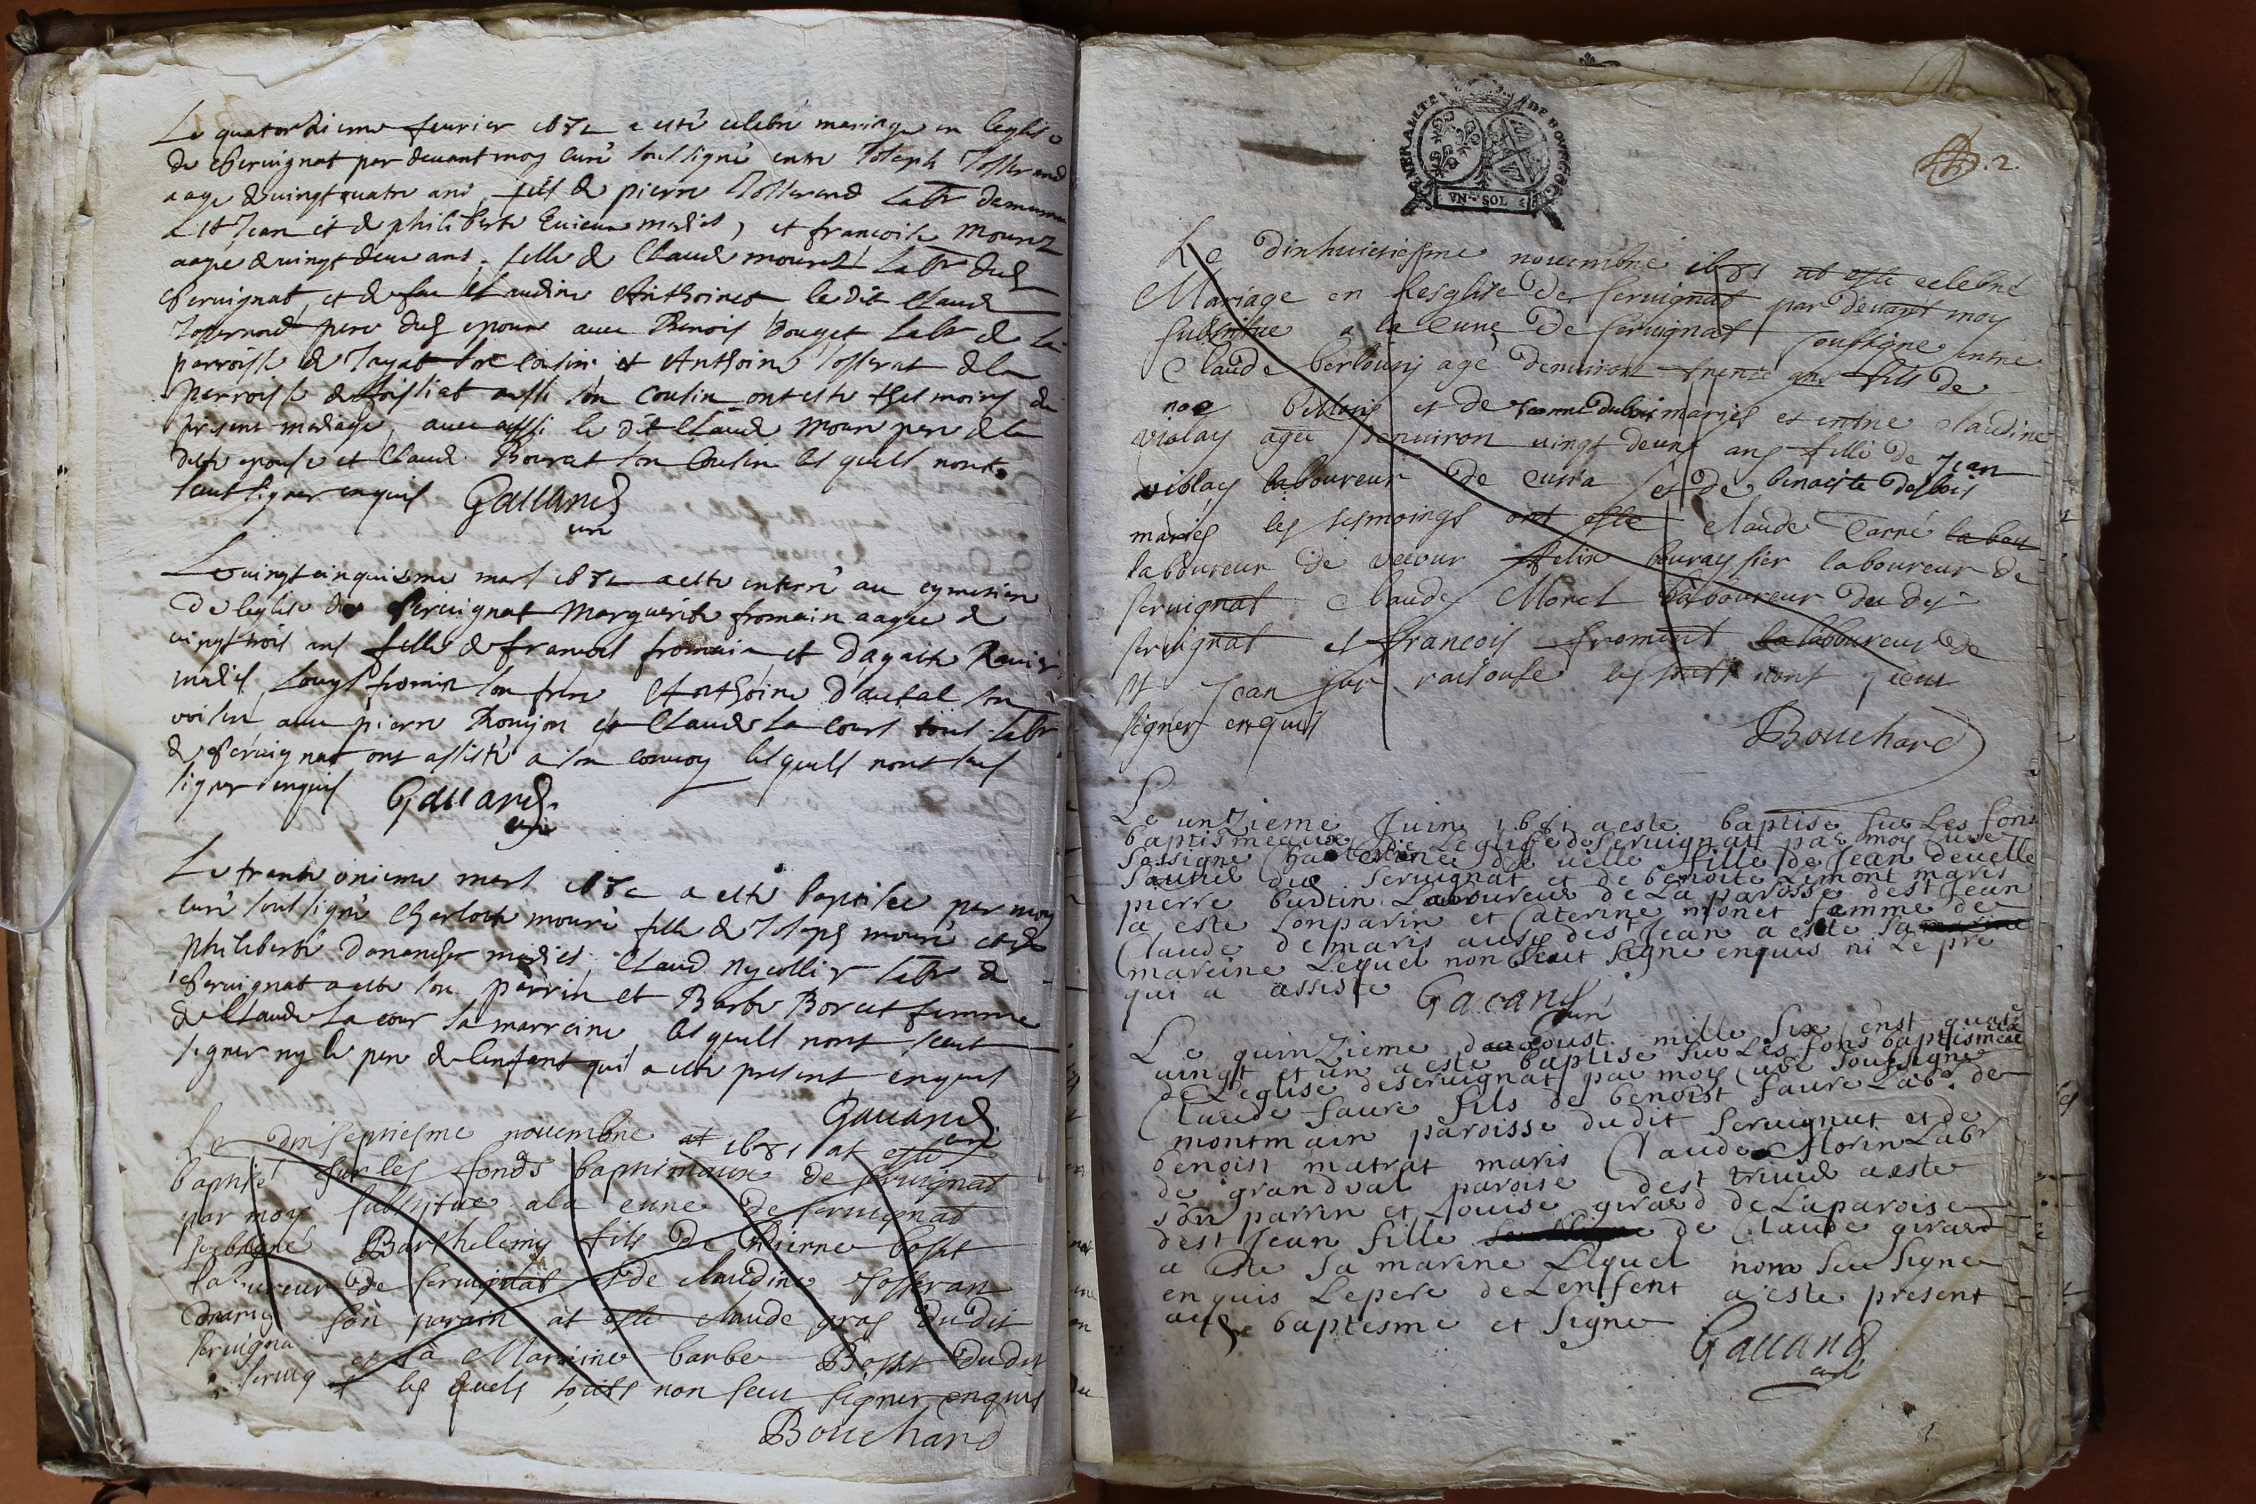 Le quatorzieme feurier 1682 a esté celebré mariage en leglise
de Seruignat par deuant moy curé soussigné entre Joseph Josserand
aage de uingt quatre ans, fils de pierre Josserand Labr demeurant
a St Jean et de philiberte mariés, et francoise Mourez
aage de uingt deux ans fille de Claude mourez Labr dud
Seruignat, et de feu Claudine Anthoinet le dit Claude
Josserand pere dud epoux auec Benois Bouget Labr de la
parroisse de Jayat son cousin et Anthoine Josserat de la
perroisse de foissiat aussi son cousin ont este thesmoins du
present mariage, auec aussi le dit Claude Moure pere de la
ditte epouse et Claude Bourat son Cousin les quels nont
sceut signer enquis Gauand
curé
Le uingt cinquieme mars 1682 a este enterré au cymetiere
de leglise de Seruignat Marguerite fromain aagee de
uingt trois ans fille de francois fromain et dagathe
mariés Louys fromin son frere Anthoine dautal son
voisin auec pierre Roujon et Claude La Cour tous Labr
de Seruignat ont assisté a son conuoy les quels nont sceu
signer enquis Gauand
curé
Le trente onieme mars 1682 a esté baptisee par moy
curé soussigné Charlotte mouré fille de Joseph mouré et de
philiberte Donancher mariés, Claud nycollier Labr de
Seruignat a esté son parrin et Barbe Borat femme
de Claude La cour sa marraine, les quels nont sceut
signer ny le pere de lenfant qui a esté present enquis
Gauand
curé
Le dixseptiesme nouembre at 1681 at esté
baptisé sur les fonds baptimaux de seruignat
par moy substitue a la cure de seruignat
soubsigné Barthelemy fils de Pierre bosset
laboureur de seruignat et de claudine Josseran
mariés son parain at esté claude gras dudit
seruigna et sa Maraine barbe Bosset dudit
seruig les quels touts non sceu signer enquis
Bouchard
GENERALITE DE BOVRGOGNE
VN SOL
2.
Le dixhuictiesme nouembre 1681 at esté celebré
Mariage en lesglise de seruignat par deuant moy
substitue a la cure de seruignat soussigne entre
Claude berloüis agé denuiron trente ans fils de
noe bertouis et de Jeanne dubois mariés et entre claudine
violay agée denuiron uingt deux ans fille de Jean
violay laboureur de curia et de benoiste desbois
mariés les tesmoings ont esté claude Carré la bou
laboureur de felix bourassier laboureur de
seruignat claude Morel laboureur du dy
seruignat et francois froment la laboureur de
St Jean sur raisouse les touts nont sceut
signer enquis
Bouchard
Le untzieme Juin 1681 a este baptise sur Les fons
baptismeaux de Leglise de Seruignat par moy Cure
Sassigne deuelle fille de Jean deuelle
dud Seruignat et de benoite Limont maris
pierre burtin Laboureur de La paroisse dest Jean
a este son parin et Caterine monet famme de
Claude demaris ausy dest Jean a este sa marine
mareine Lequel non Sceut signe enquis ni Le pre
qui a assiste Gauand
Cure
Le quinzieme daoust mille six Censt quatre
uingt et un a este baptise sur Les fons baptismeaux
de Leglise de Seruignat par moy Cure Soussigne
Claude faure fils de benoist faure Labr de
montmain paroisse dudit Seruignat et de
benoist matrat maris Claude Morin Labr
de grandual paroise dest triuier a este
son parrin et Louise girard de La paroise
dest Jean fille de Claude girard
a este sa marine Lequel nom Seu signe
enquis Le pere de Lenfent a este present
aud baptesme et signe
Gauand
curé